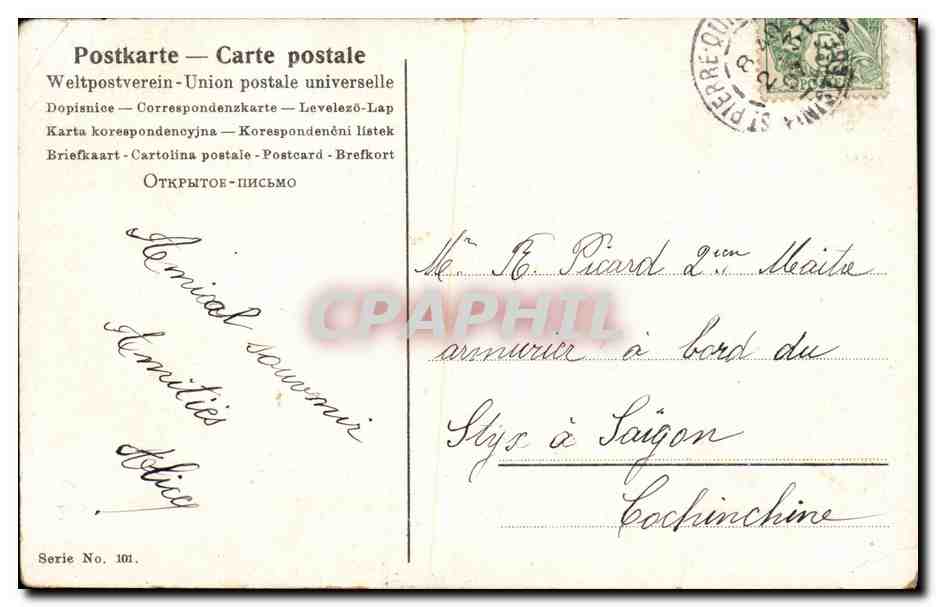 Postkarte — Carte postale
Weltpostverein - Union postale universelle
Dopisnice — Correspondenzkarte — Levelező-Lap
Karta korespondencyjna — Korespondenčni listek
Briefkaart - Cartolina postale - Postcard - Brefkort
Открытое-письмо
ST PIERRE-QUI
8
2
Amical souvenir
Amitiés
Alice
Mr. E. Picard 2ième Maitre
armurier à bord du
Styx à Saïgon
Cochinchine
CPAPHIL
Serie No. 101.